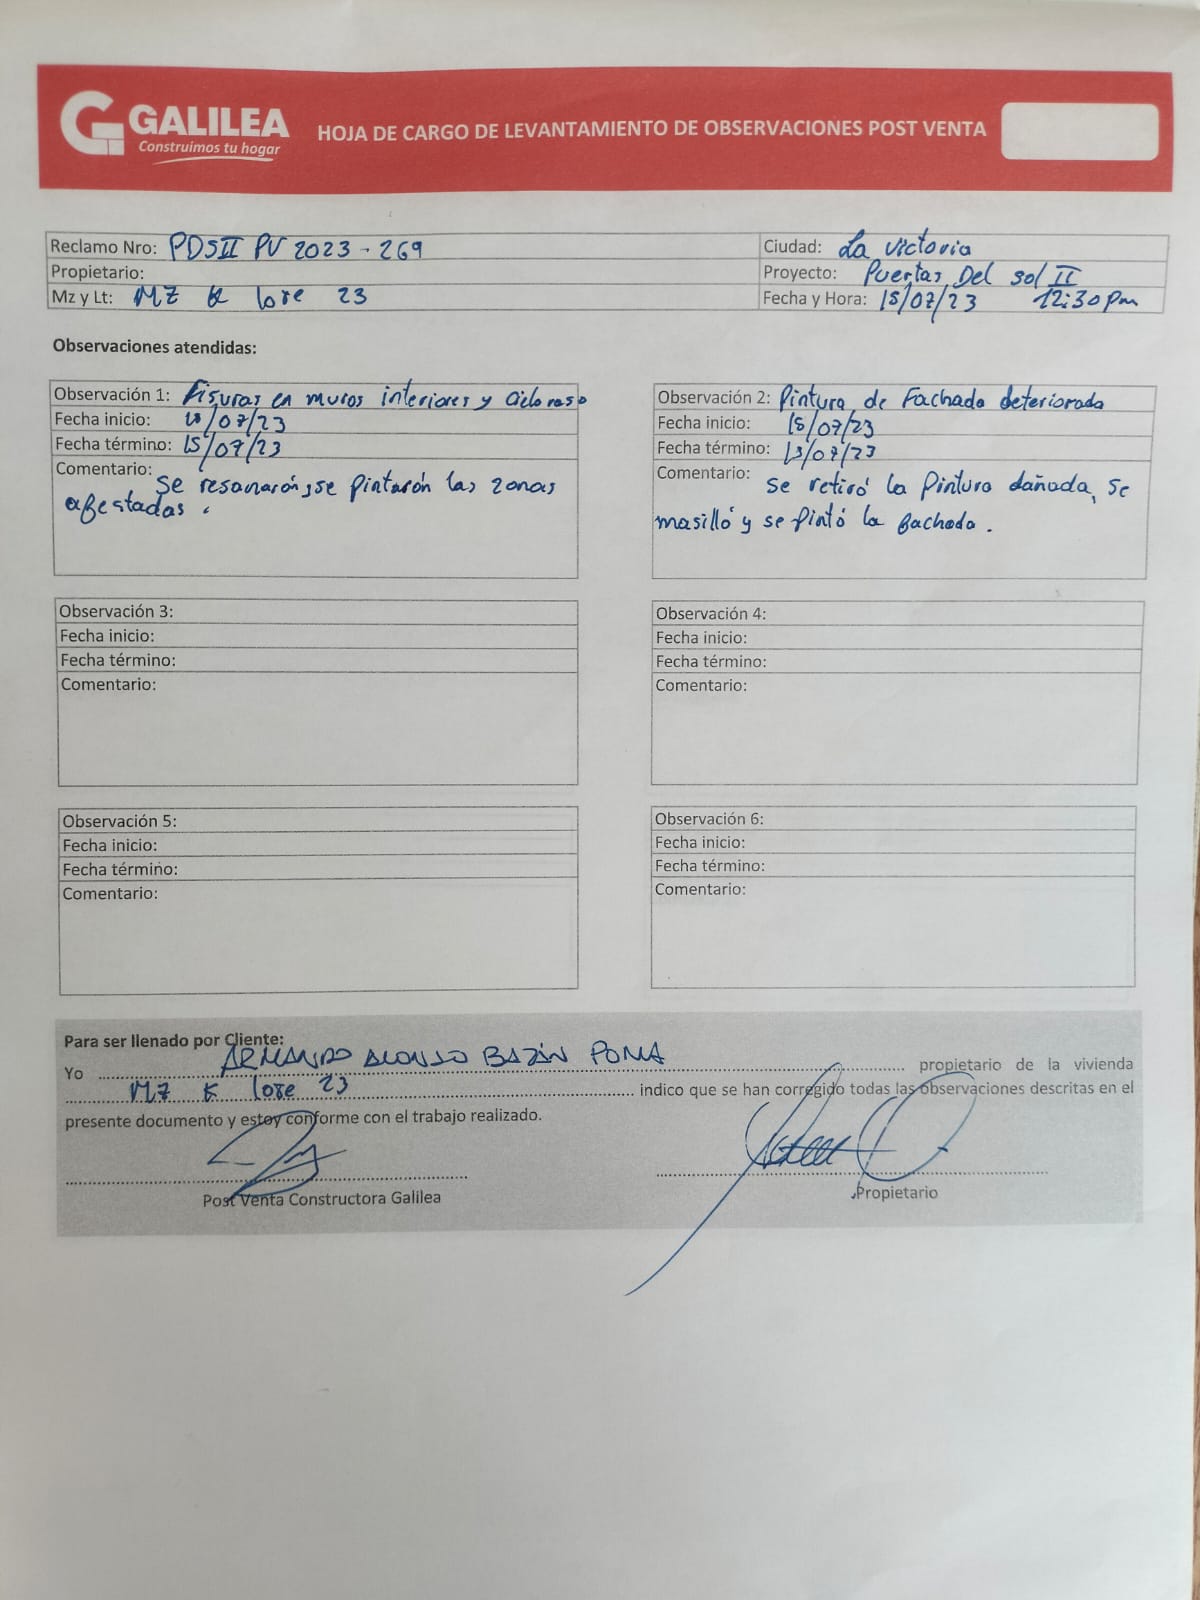 GALILEA
Construimos tu hogar
HOJA DE CARGO DE LEVANTAMIENTO DE OBSERVACIONES POST VENTA
Reclamo Nro: PDSII PV 2023 - 269
Ciudad: La Victoria
Propietario:
Proyecto: Puertas Del Sol II
Mz y Lt: MZ K lote 23
Fecha y Hora: 15/07/23 12:30 pm
Observaciones atendidas:
Observación 1: Fisuras en muros interiores y cieloraso
Fecha inicio: /07/23
Fecha término: 15/07/23
Comentario: Se resanarón, se pintarón las zonas
afestadas.
Observación 2: Pintura de Fachada deteriorada
Fecha inicio: 15/07/23
Fecha término: 15/07/23
Comentario: Se retiró la pintura dañada, se
masilló y se pintó la fachada.
Observación 3:
Fecha inicio:
Fecha término:
Comentario:
Observación 4:
Fecha inicio:
Fecha término:
Comentario:
Observación 5:
Fecha inicio:
Fecha término:
Comentario:
Observación 6:
Fecha inicio:
Fecha término:
Comentario:
Para ser llenado por Cliente:
Yo ARMANDO ALONSO BAZÁN POMA propietario de la vivienda
MZ K lote 23 indico que se han corregido todas las observaciones descritas en el
presente documento y estoy conforme con el trabajo realizado.
Post Venta Constructora Galilea
Propietario